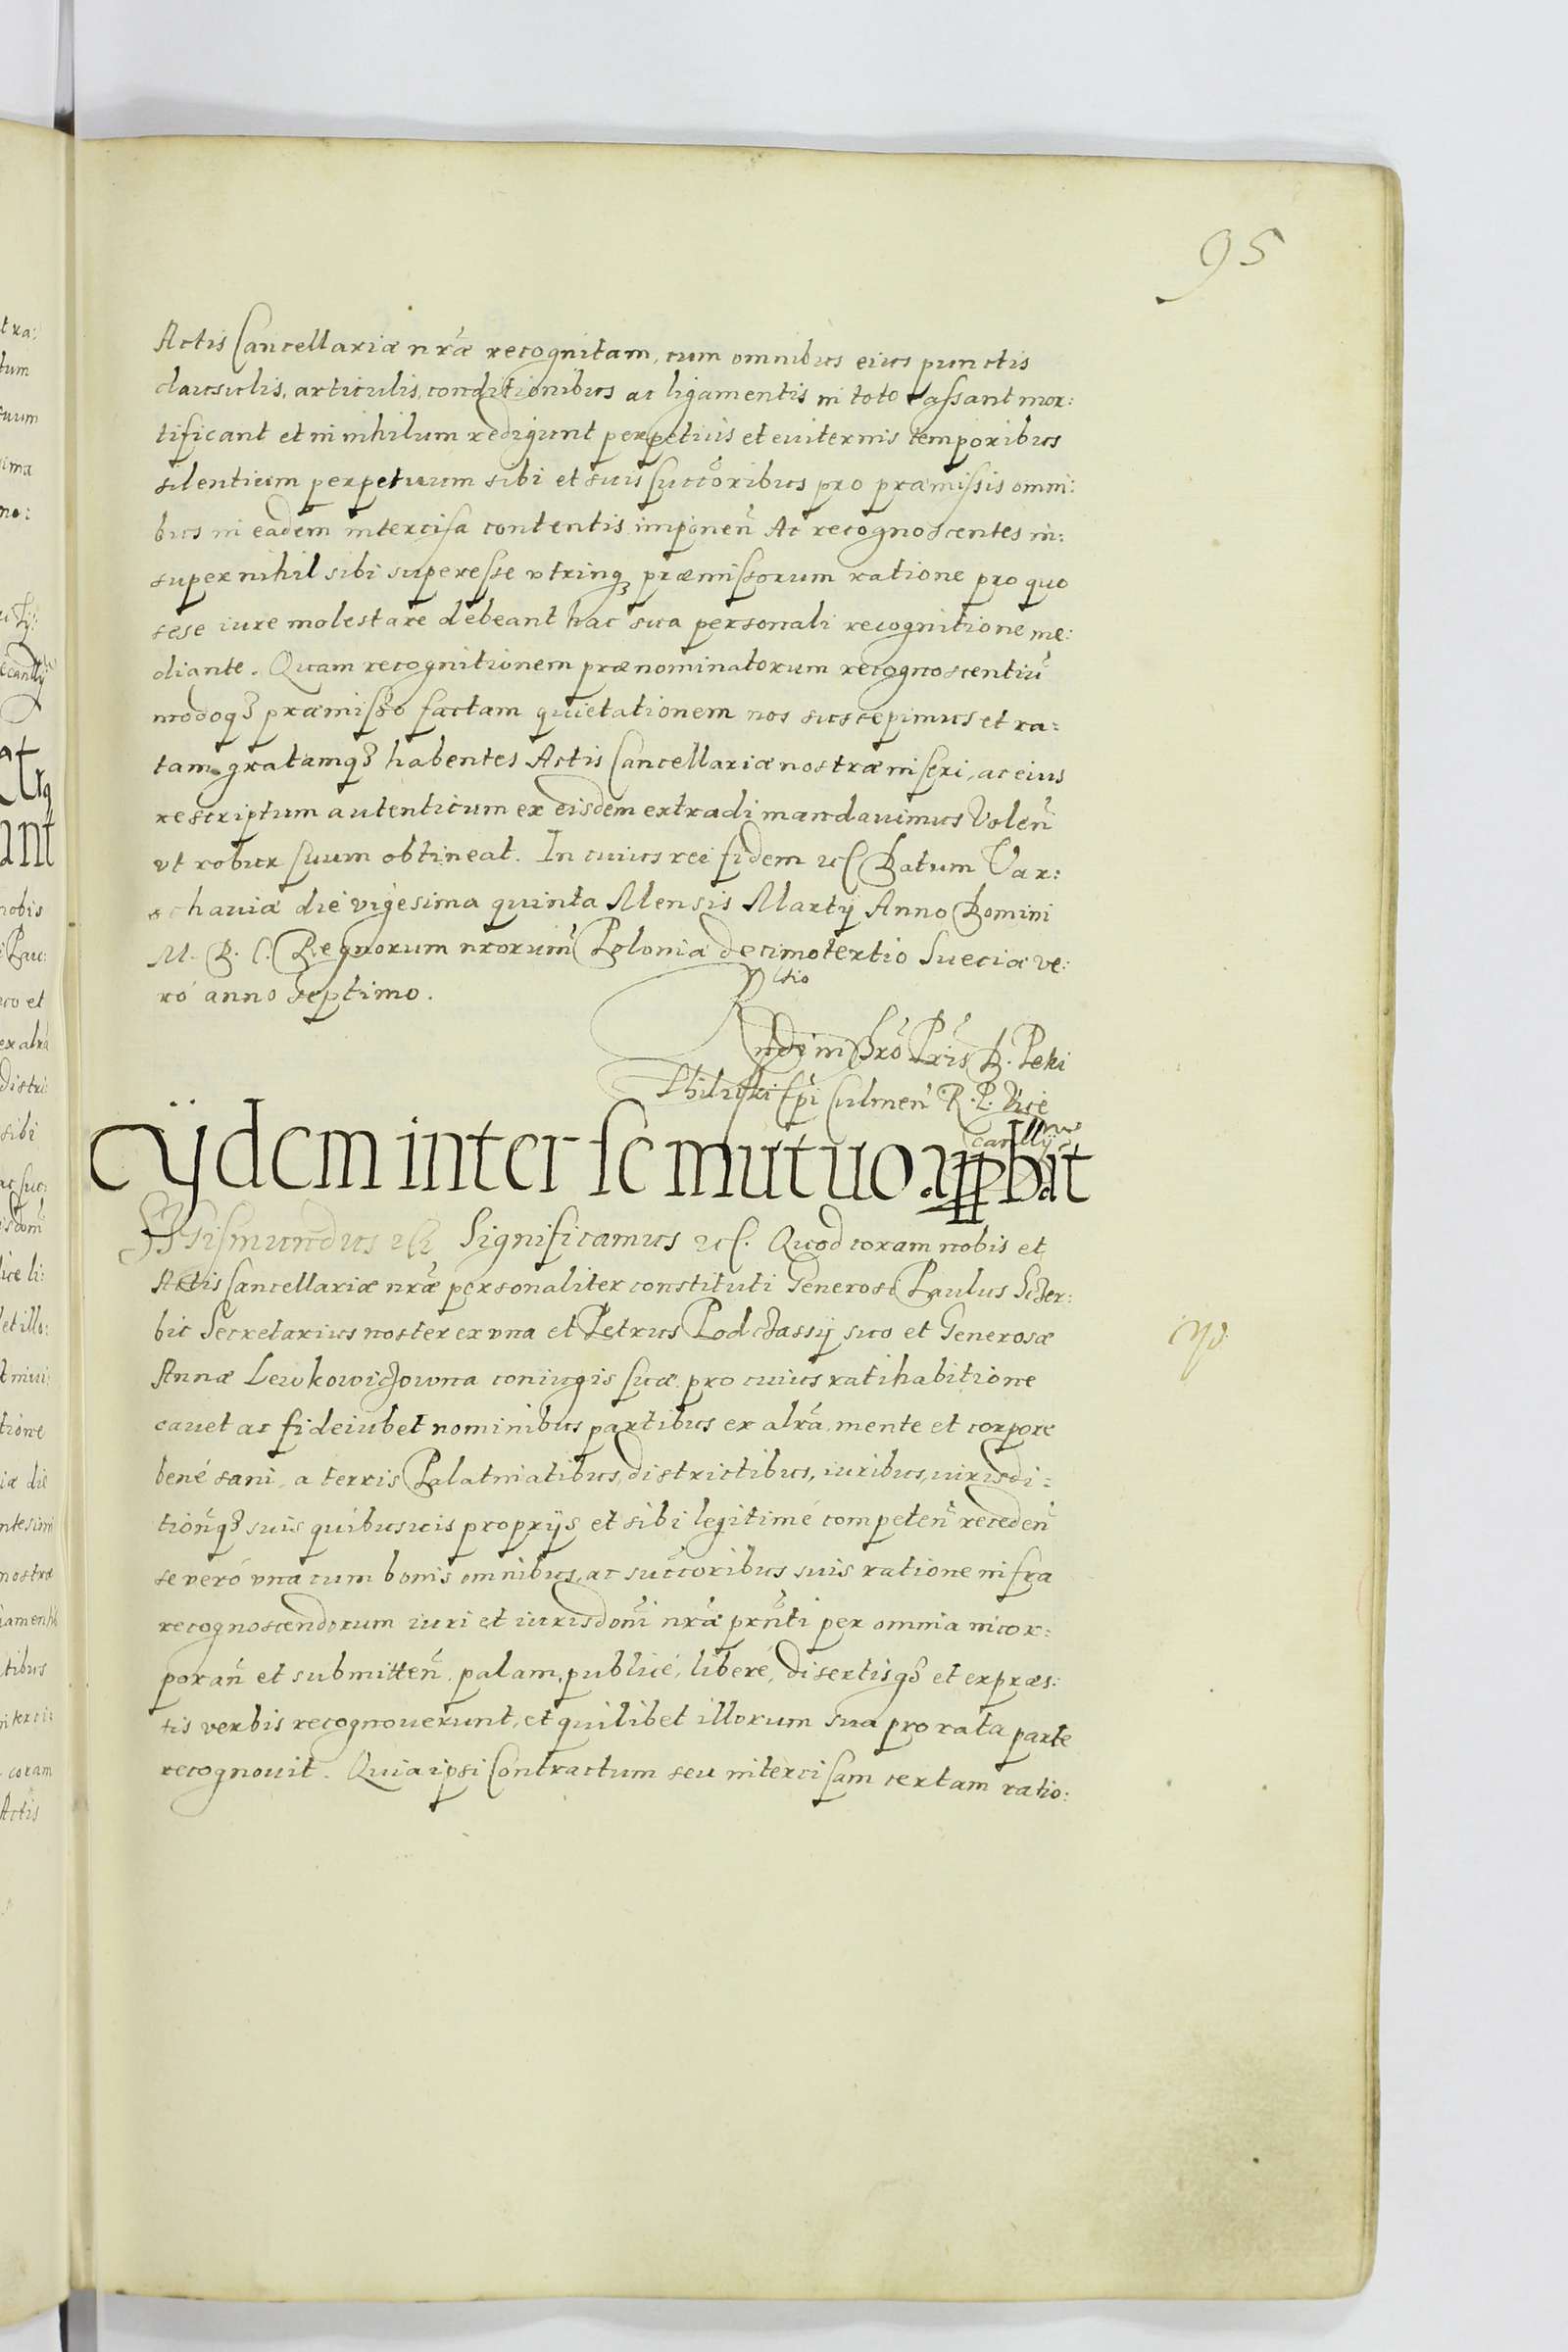 95
Actis Cancellariæ nr̃æ recognitam, cum omnibus eius punctis
clausulis, articulis, conditionibus ac ligamentis in toto cassant mor:
tificant et in nihilum redigunt perpetuis et euiternis temporibus
silentium perpetuum sibi et suis succõribus pro præmissis omni:
bus in eadem intercisa contentis imponeñ Ac recognoscentes in:
super nihil sibi superesse vtrinq præmissorum ratione pro quo
sese iure molestare debeant hac sua personali recognitione me:
diante. Quam recognitionem prænominatorum recognoscentiũ
modoq præmisso factam quietationem nos suscepimus et ra:
tam gratamq habentes Actis Cancellariæ nostræ inseri, ac eius
rescriptum autenticum ex eisdem extradi mandauimus Voleñ
vt robur suum obtineat. In cuius rei fidem etc Datum Var:
schauiæ die vigesima quinta Mensis Martij Anno Domini
M. D. C. Regnorum nrorum̃ Poloniæ decimotertio Sueciæ ve:
ró anno septimo.
Rtio
Rndi in Chrõ Pr̃is D. Petri
Thiliczki Epĩ Culmeñ R. P. Vice
Cancllrij
Eÿdem inter se mutuo
Sigismundus etc Significamus etc. Quod coram nobis et
Actis Cancellariæ nr̃æ personaliter constituti Generosi Paulus Sczer:
bic Secretarius noster ex vna et Petrus Podczassÿ suo et Generosæ
Annæ Lewkowiczowna coniugis suæ pro cuius ratihabitione
cauet ac fideiubet nominibus partibus ex altr̃a, mente et corpore
bené sani, a terris Palatinatibus, districtibus, iuribus, iurisdi:
tioñq suis quibusuis proprijs et sibi legitimé competeñ recedeñ
se veró vna cum bonis omnibus, ac succ̃oribus suis ratione infra
recognoscendorum iuri et iurisdoñi nr̃æ prñti per omnia incor:
porañ et submitteñ, palam, publicé, liberé, disertisq et expræs:
sis verbis recognouerunt, et quilibet illorum sua pro rata parte
recognouit. Quia ipsi Contractum seu intercisam certam ratio: